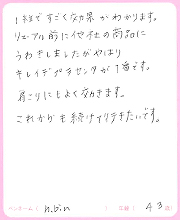 1箱ですごく効果がわかります。
リニューアル前に他社の商品に
うわきしましたがやはり
キレイデプラセンタが1番です。
肩こりにもよく効きます。
これからも続けて行きたいです。
ペンネーム( n.bin ) 年齢( 43歳)